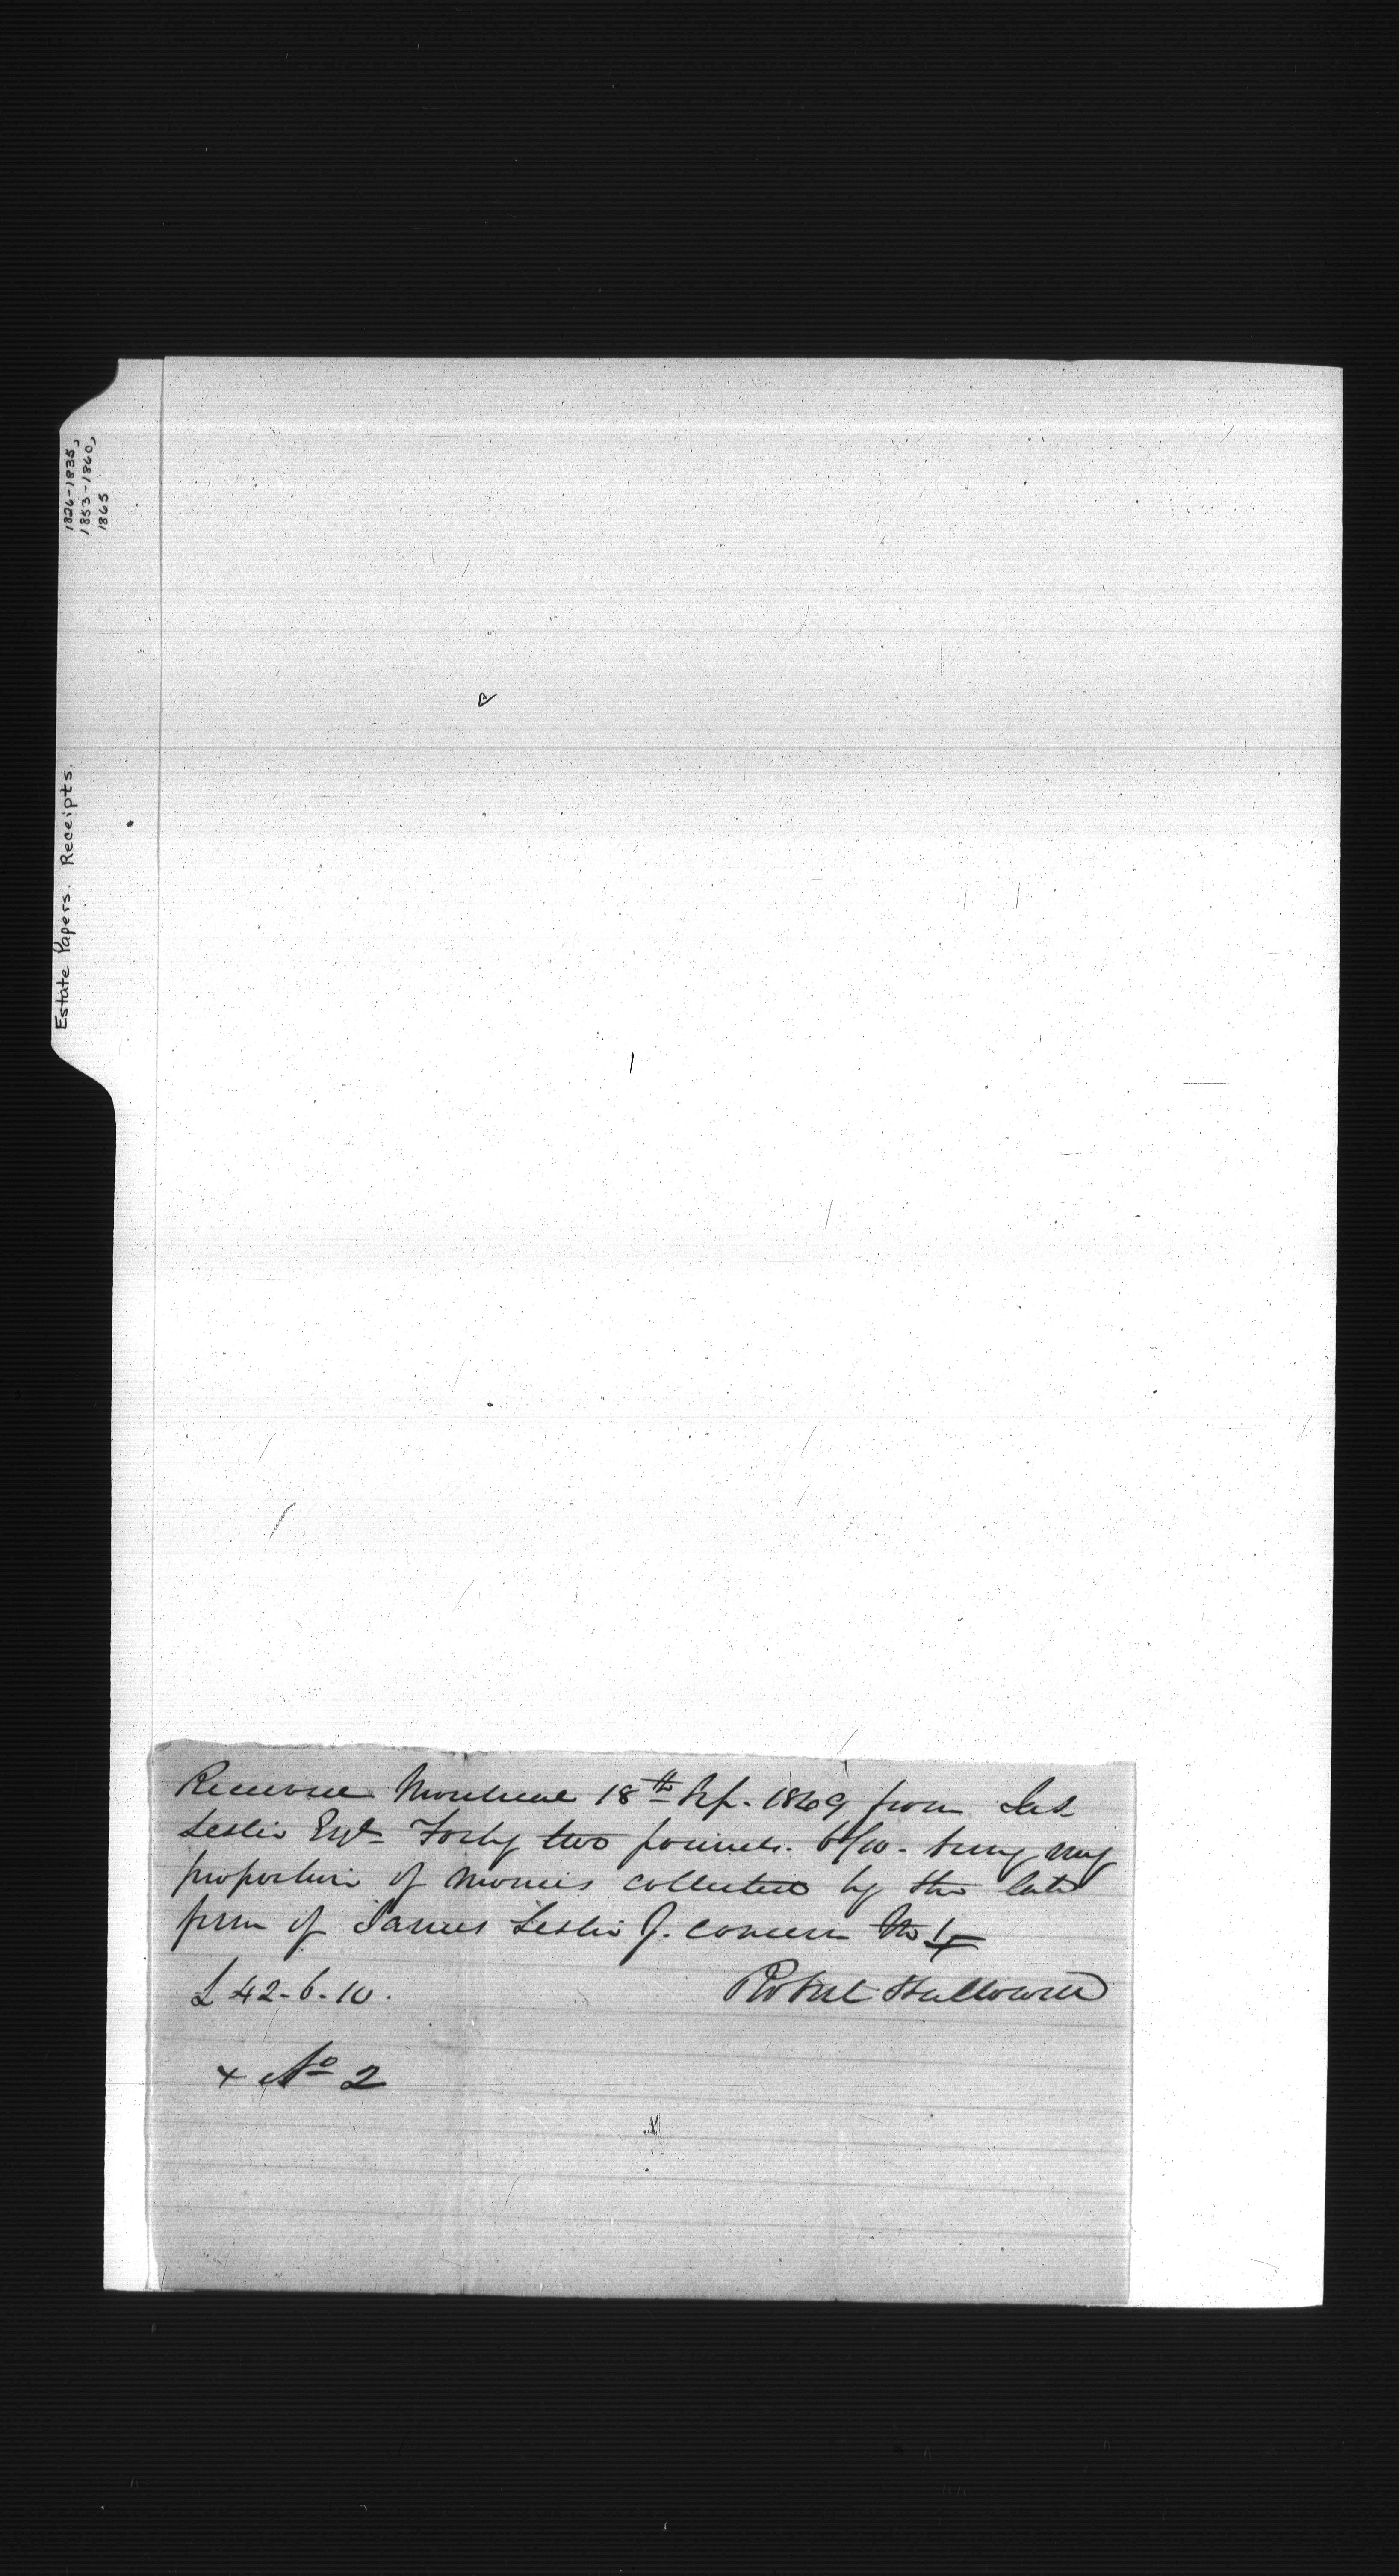 1826-1835,
1853-1860,
1865
Estate Papers. Receipts.
Received Montreal 18th Sep. 1849 from Jas
Leslie Esqr Forty two pounds. 6/10. being my
proportion of monies collected by the late
firm of James Leslie & concern No 1
£ 42-6-10.
Robert
+ No 2